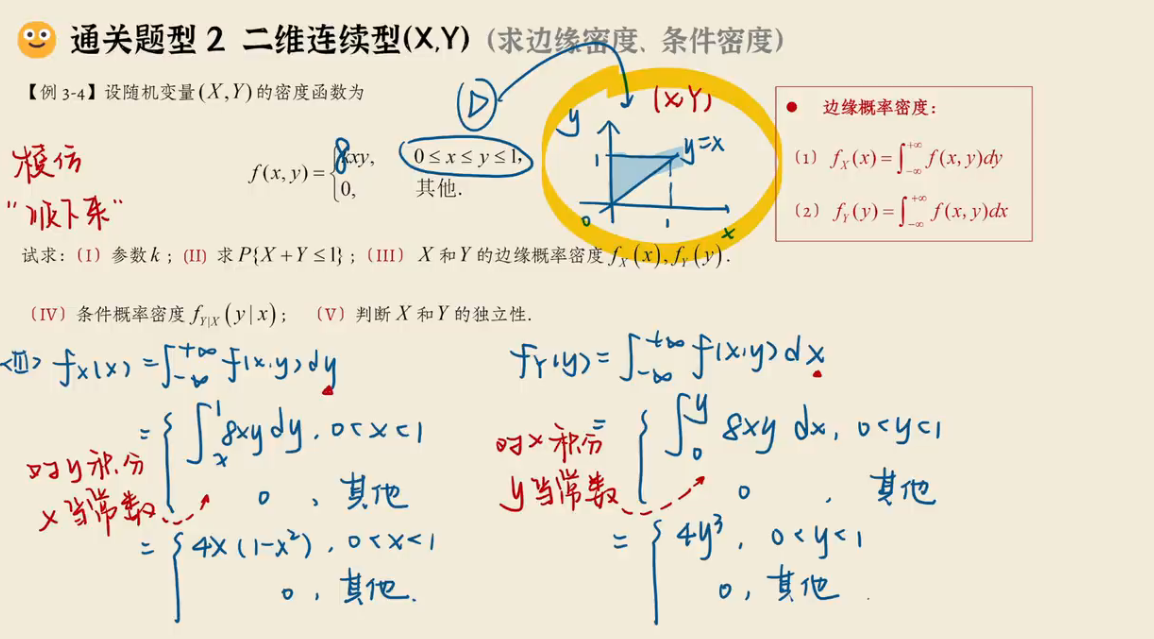 通关题型 2 二维连续型(X,Y)(求边缘密度、条件密度)
【例 3-4】设随机变量(X,Y)的密度函数为
f(x,y)={8xy, 0≤x≤y≤1,
0, 其他.
模仿
"顺下来"
D
(X,Y)
y
1
y=x
0
1
x
● 边缘概率密度:
(1) f_X(x)=∫_{-∞}^{+∞} f(x,y)dy
(2) f_Y(y)=∫_{-∞}^{+∞} f(x,y)dx
试求:(I)参数k;(II) 求P{X+Y≤1};(III) X和Y的边缘概率密度f_X(x),f_Y(y).
(IV)条件概率密度f_{Y|X}(y|x); (V)判断X和Y的独立性.
<III> f_X(x)=∫_{-∞}^{+∞} f(x,y)dy
={∫_x^1 8xy dy, 0<x<1
0, 其他
对y积分
x当常数
={4x(1-x²), 0<x<1
0, 其他.
f_Y(y)=∫_{-∞}^{+∞} f(x,y)dx
={∫_0^y 8xy dx, 0<y<1
0, 其他
对x积分
y当常数
={4y³, 0<y<1
0, 其他